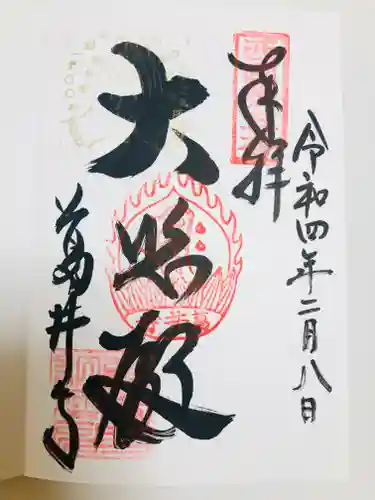 令和四年二月八日
奉拝
大悲殿
葛井寺